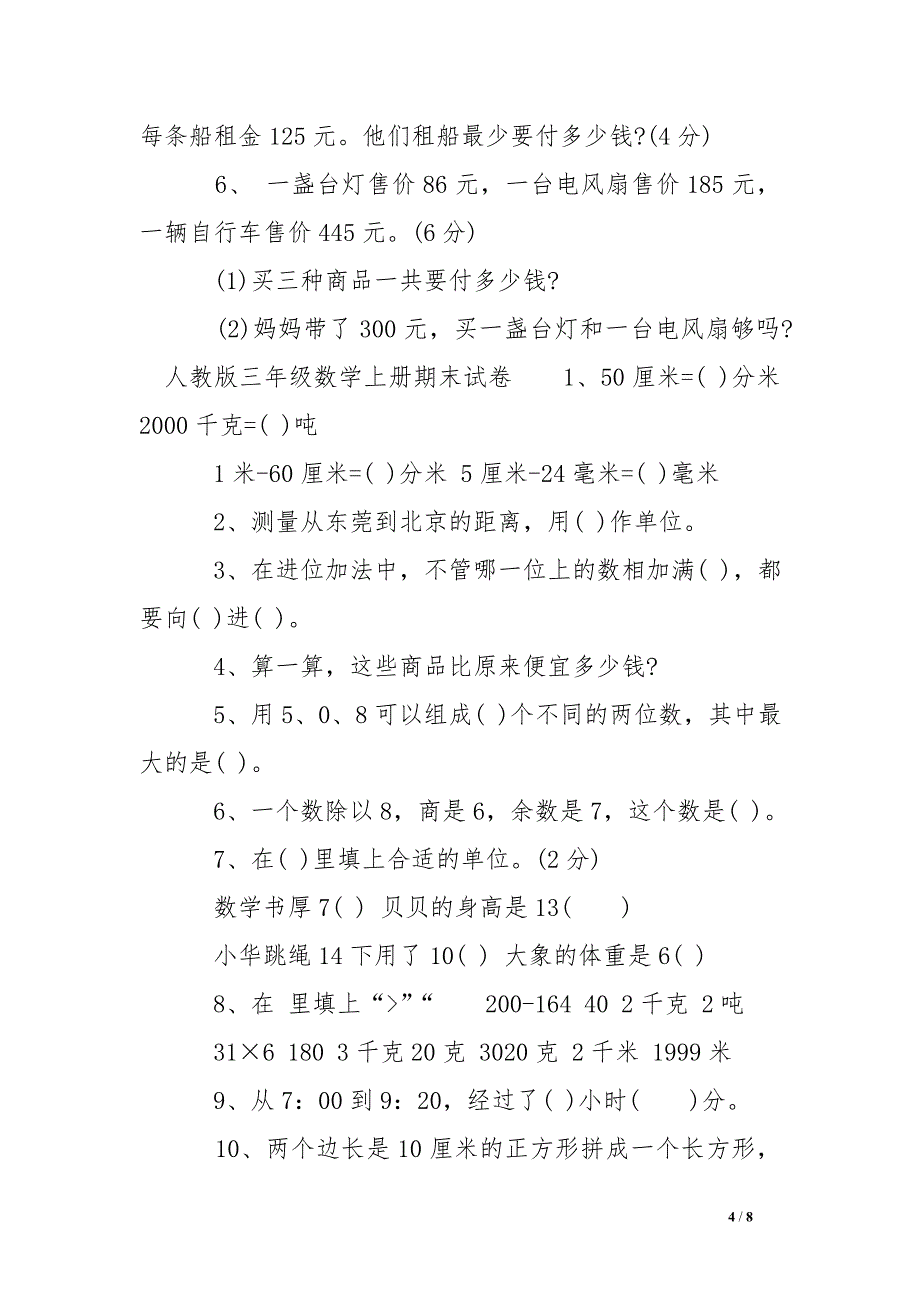 每条船租金125元。他们租船最少要付多少钱?(4分)
6、 一盏台灯售价86元，一台电风扇售价185元，
一辆自行车售价445元。(6分)
(1)买三种商品一共要付多少钱?
(2)妈妈带了300元，买一盏台灯和一台电风扇够吗?
人教版三年级数学上册期末试卷  1、50厘米=( )分米
2000千克=( )吨
1米-60厘米=( )分米 5厘米-24毫米=( )毫米
2、测量从东莞到北京的距离，用( )作单位。
3、在进位加法中，不管哪一位上的数相加满( )，都
要向( )进( )。
4、算一算，这些商品比原来便宜多少钱?
5、用5、0、8可以组成( )个不同的两位数，其中最
大的是( )。
6、一个数除以8，商是6，余数是7，这个数是( )。
7、在( )里填上合适的单位。(2分)
数学书厚7( ) 贝贝的身高是13(  )
小华跳绳14下用了10( ) 大象的体重是6( )
8、在 里填上“>”“  200-164 40 2千克 2吨
31×6 180 3千克20克 3020克 2千米 1999米
9、从7：00到9：20，经过了( )小时(  )分。
10、两个边长是10厘米的正方形拼成一个长方形，
4 / 8